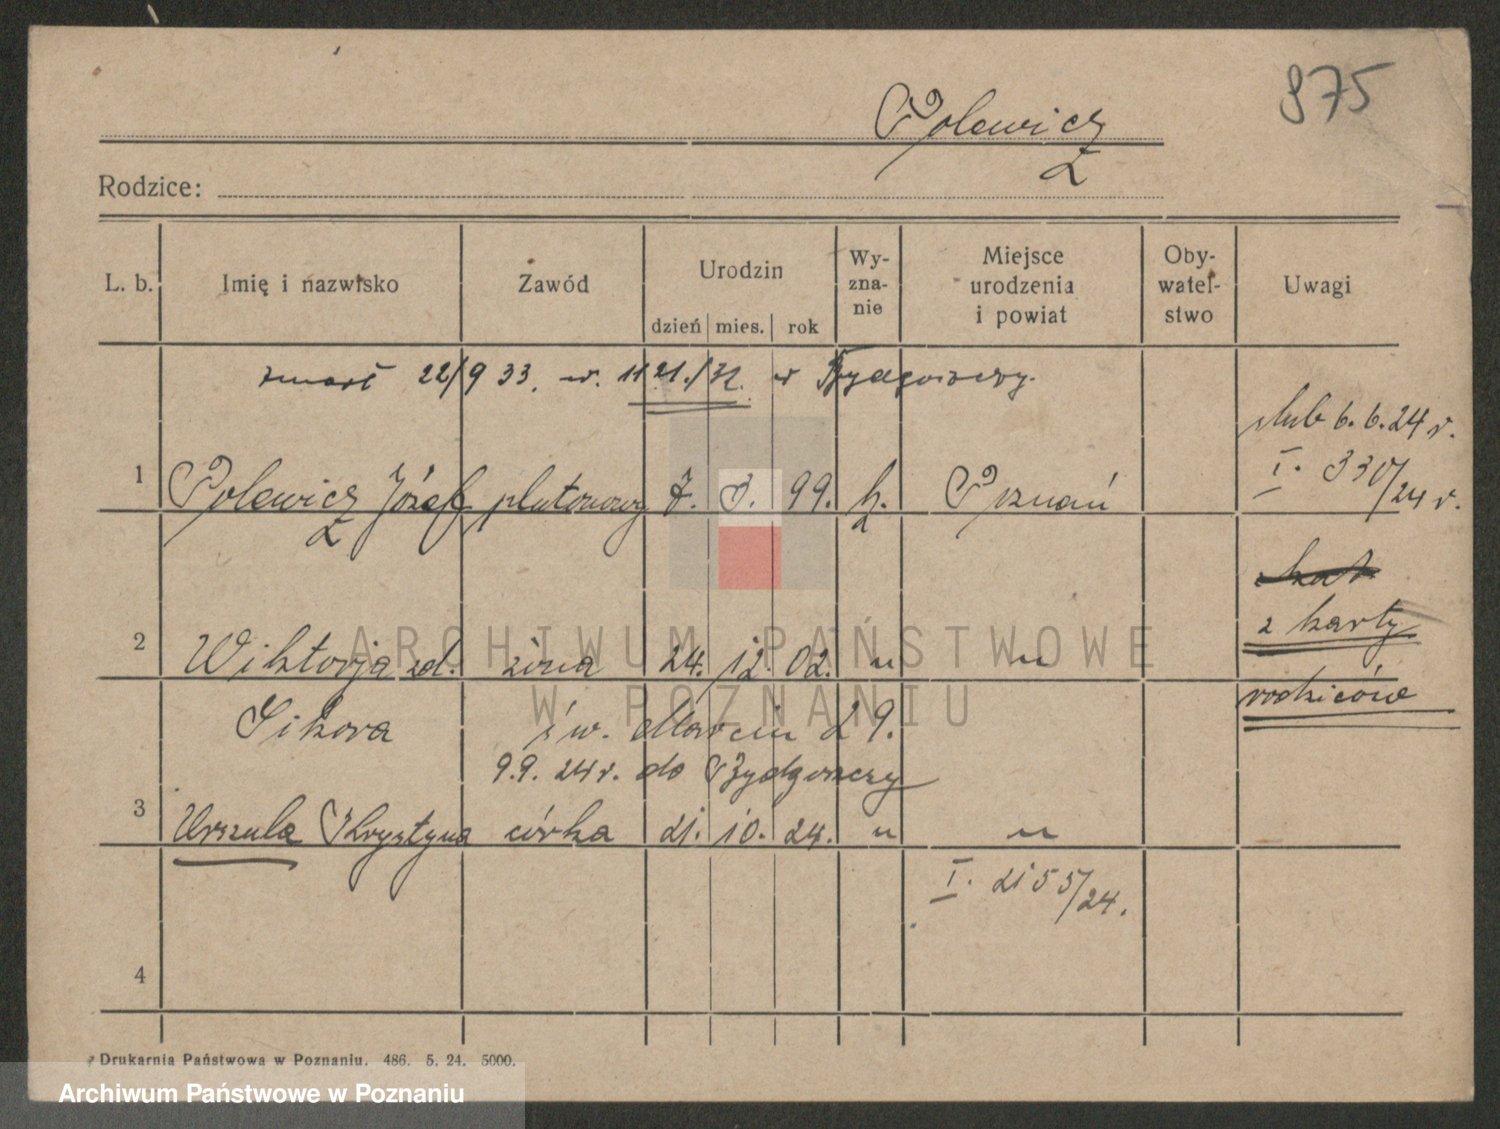 975
Polewicz
Rodzice:
L. b. Imię i nazwisko Zawód Urodzin dzień mies. rok Wy-zna-nie Miejsce urodzenia i powiat Oby-watel-stwo Uwagi
zmarł 22/9 33. nr. 1121./32. w Bydgoszczy.
ślub 6. 6. 24 r.
I. 330/24 r.
1 Polewicz Józef plutonowy 7. 3. 99. k. Poznań
kat
z karty
2 Wiktorja zd. żona 24. 12. 02. " "
rodziców
Sikora św. Marcin 29.
9.9. 24 r. do Bydgoszczy
3 Urszula Krystyna córka 21. 10. 24. " "
I. 2155/24.
4
Drukarnia Państwowa w Poznaniu. 486. 5. 24. 5000.
ARCHIWUM PAŃSTWOWE
W POZNANIU
Archiwum Państwowe w Poznaniu